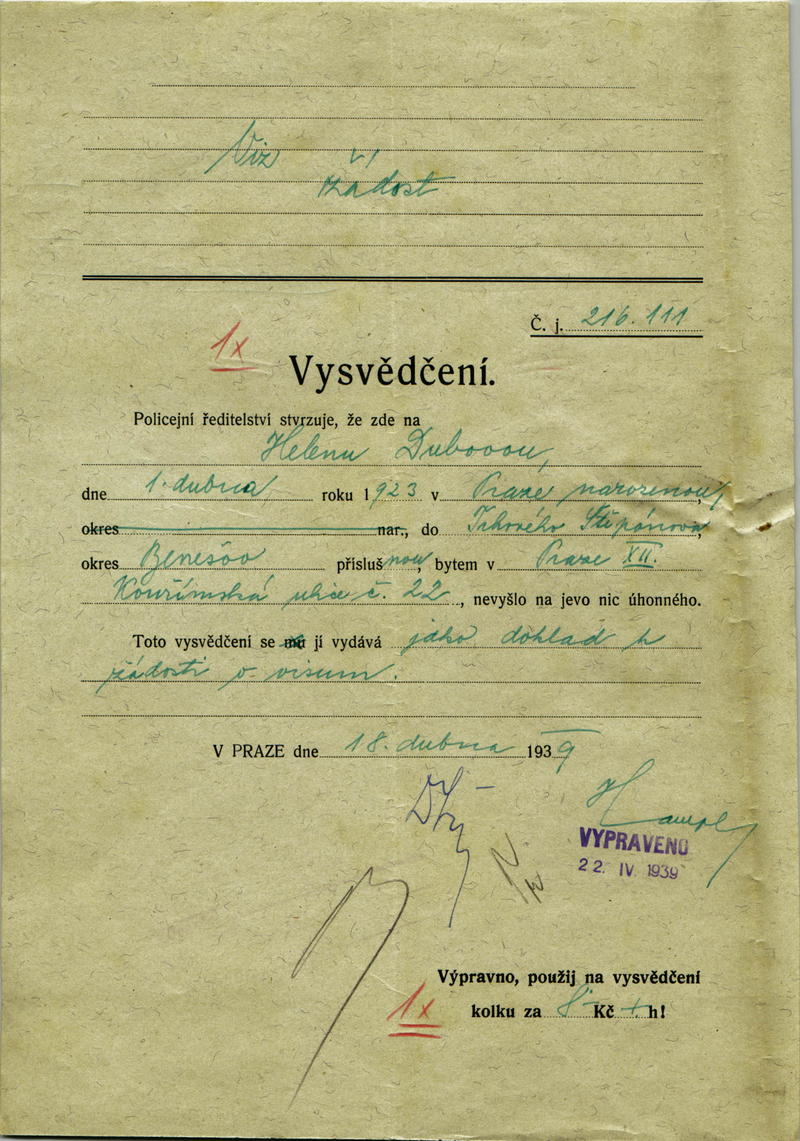 Viz
žádost
Č. j. 216.111
1x
Vysvědčení.
Policejní ředitelství stvrzuje, že zde na
Helenu Dubovou,
dne 1. dubna roku 1923 v Praze narozenou,
okres nar., do Trhového Štěpánova
okres Benešov příslušnou, bytem v Praze XII.
Kouřimská ulice č. 22, nevyšlo na jevo nic úhonného.
Toto vysvědčení se mu jí vydává jako doklad k
žádosti o visum.
V PRAZE dne 18. dubna 1939
Hampl
VYPRAVENO
22. IV 1939
Výpravno, použij na vysvědčení
1x kolku za 8 Kč h!